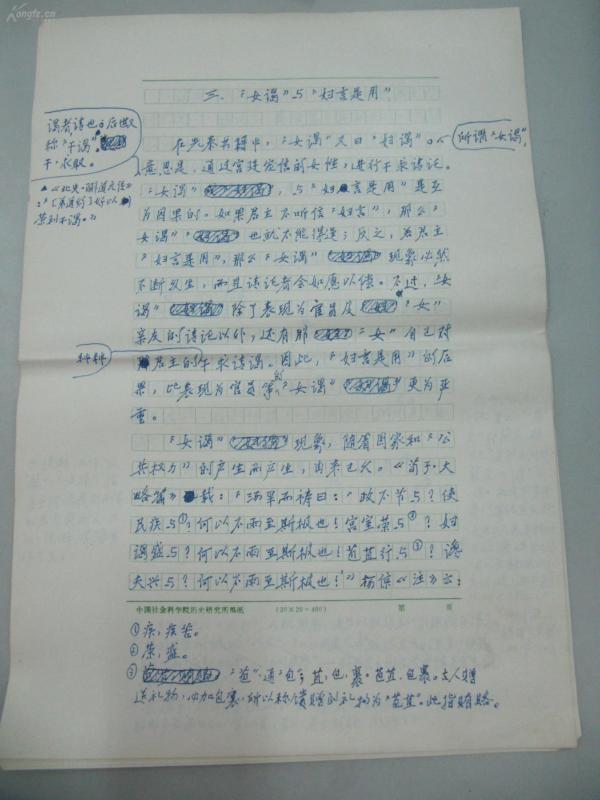 Kongfz.cn
三、"女谒"与"妇言是用"
谒者请也,后世又
称"干谒"。
干,求取。
▲《北史·郦道元传》
:"[素道剑]好以
荣利干谒。"
在先秦书籍中,"女谒"又曰"妇谒"。
所谓"女谒",
意思是,通过宫廷宠信的女性,进行干求请托。
"女谒",与"妇言是用"是互
为因果的。如果君主不听信"妇言",那么"
女谒"也就不能得逞;反之,若君主
"妇言是用",那么"女谒"现象必然
不断发生,而且请托者会如愿以偿。不过,"女
谒"除了表现为官员及"女"
亲友的请托以外,还有那"女"自己对
种种
君主的干求请谒。因此,"妇言是用"的后
果,比表现为官员等的"女谒"更为严
重。
"女谒"现象,随着国家和"公
共权力"的产生而产生,由来已久。《荀子·大
略篇》载:"汤旱而祷曰:'政不节与?使
民疾与①?何以不雨至斯极也!宫室荣与②?妇
谒盛与?何以不雨至斯极也!苞苴行与③?谗
夫兴与?何以不雨至斯极也!'"杨倞《注》云:
中国社会科学院历史研究所稿纸 (20×20=400) 第 页
①疾,疾苦。
②荣,盛。
③"苞",通"包";苴,包,裹。苞苴,包裹。古人赠
送礼物,必加包裹,所以称馈赠的礼物为"苞苴"。此指贿赂。